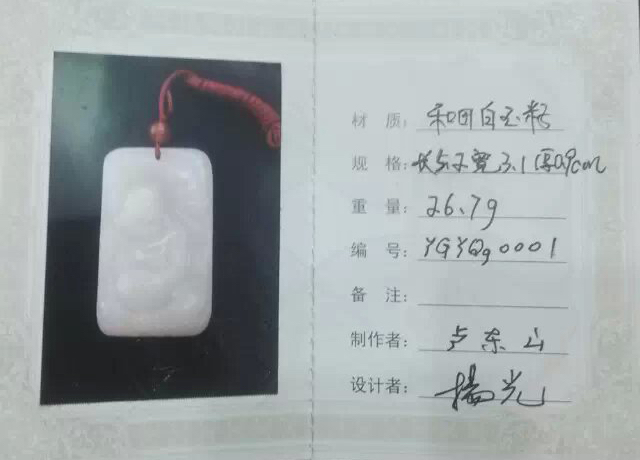 材 质: 和田白玉籽
规 格: 长5.2宽3.1厚0.9cm
重 量: 26.7g
编 号: YGYQg0001
备 注:
制作者: 卢东山
设计者: 杨光